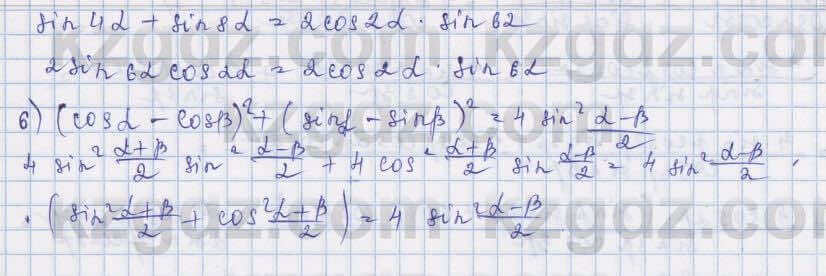 sin 4α + sin 8α = 2cos 2α · sin 6α
2 sin 6α cos 2α = 2cos 2α · sin 6α
б) (cos α - cos β)² + (sin α - sin β)² = 4 sin² (α-β)/2
4 sin² (α+β)/2 sin² (α-β)/2 + 4 cos² (α+β)/2 sin (α-β)/2 = 4 sin² (α-β)/2 ·
· (sin² (α+β)/2 + cos² (α+β)/2) = 4 sin² (α-β)/2